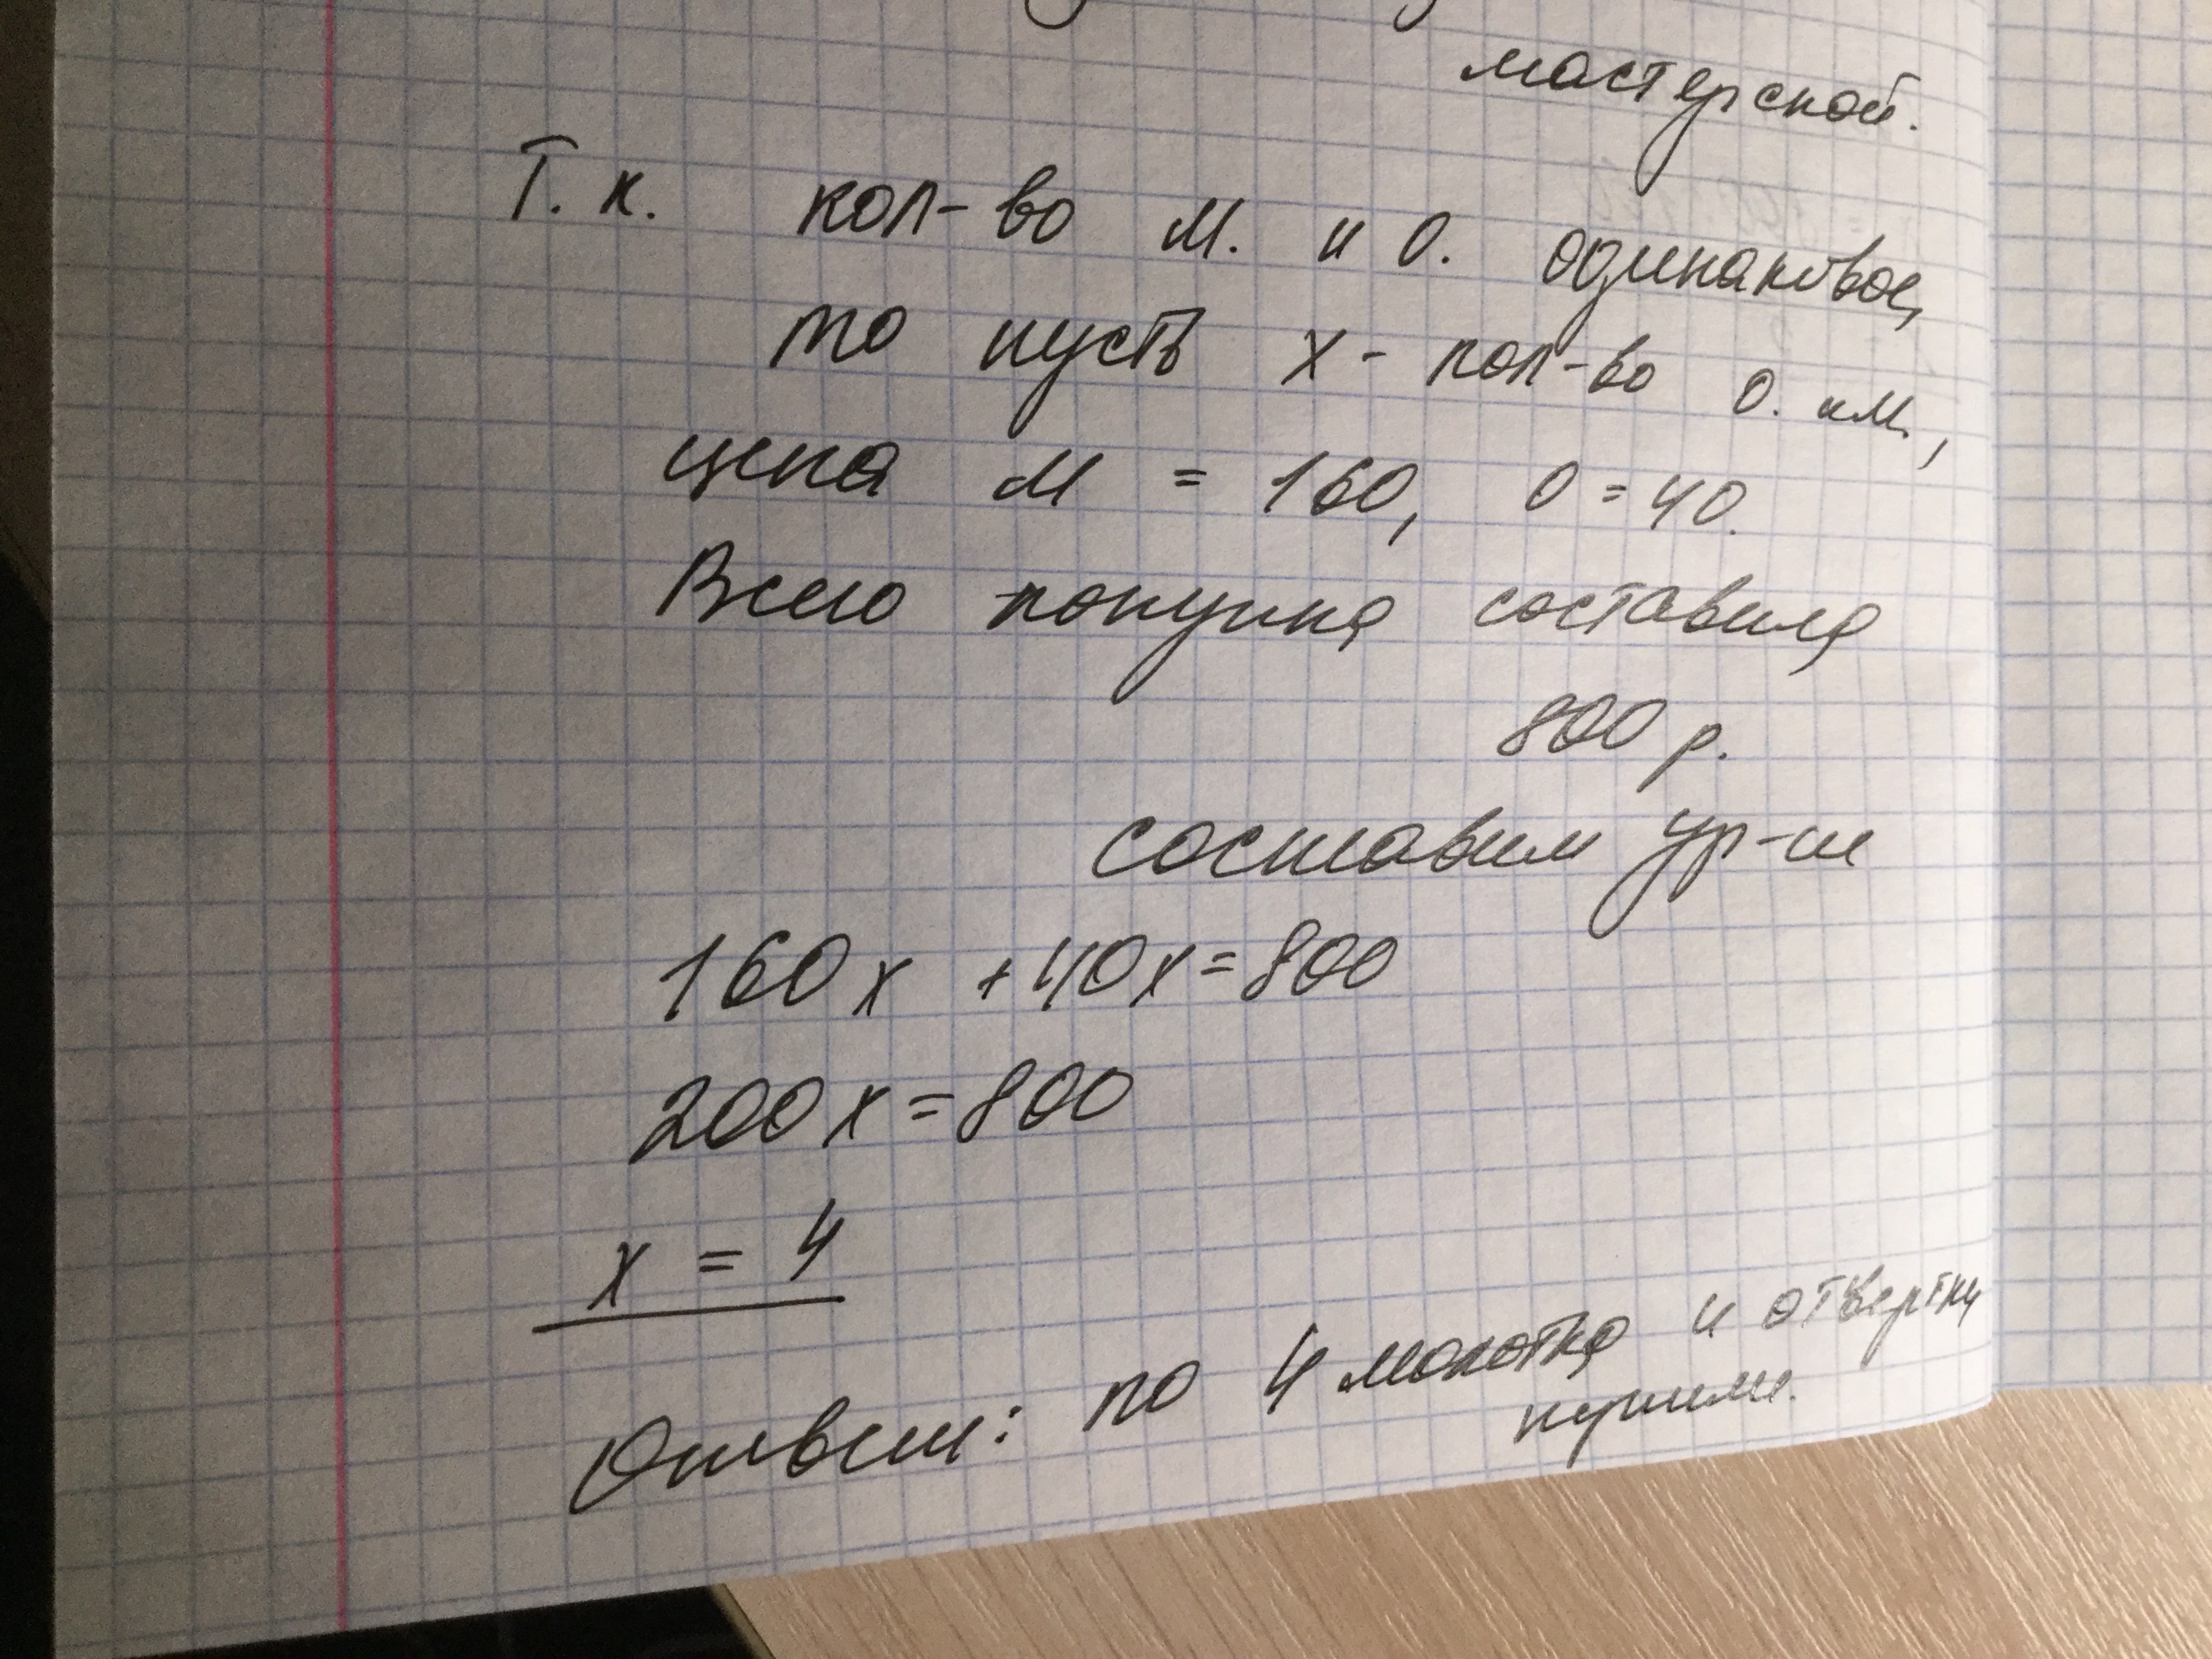 мастерской.
Т. к. кол-во м. и о. одинаковое,
то пусть x - кол-во о. и м.,
цена м = 160, о = 40.
Всего покупка составила
800 р.
составим ур-ие
160x + 40x = 800
200x = 800
x = 4
Ответ: по 4 молотка и отвертки
купили.